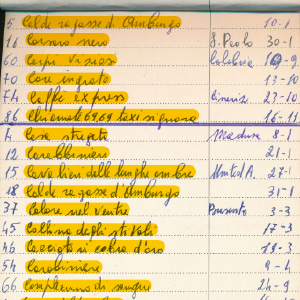 5 Calde ragazze di Amburgo 10-1
16 Corvo nero S. Paolo 30-1
60 Corpi viziosi Calabria 10-9
70 Core ingrato 13-10
74 Caffè express Cineriz 23-10
86 Chiamate 6969 taxi signora 16-11
4 Cose stregate Medusa 8-1
12 Carabbinieri 21-1
15 Cavalieri dalle lunghe ombre United A. 27-1
18 Calde ragazze d'Amburgo 31-1
37 Calore nel ventre 3-3
45 Collina degli stivali 17-3
46 Cacciatori 19-3
54 Carabiniere 9-4
66 Compleanno di sangue 24-9